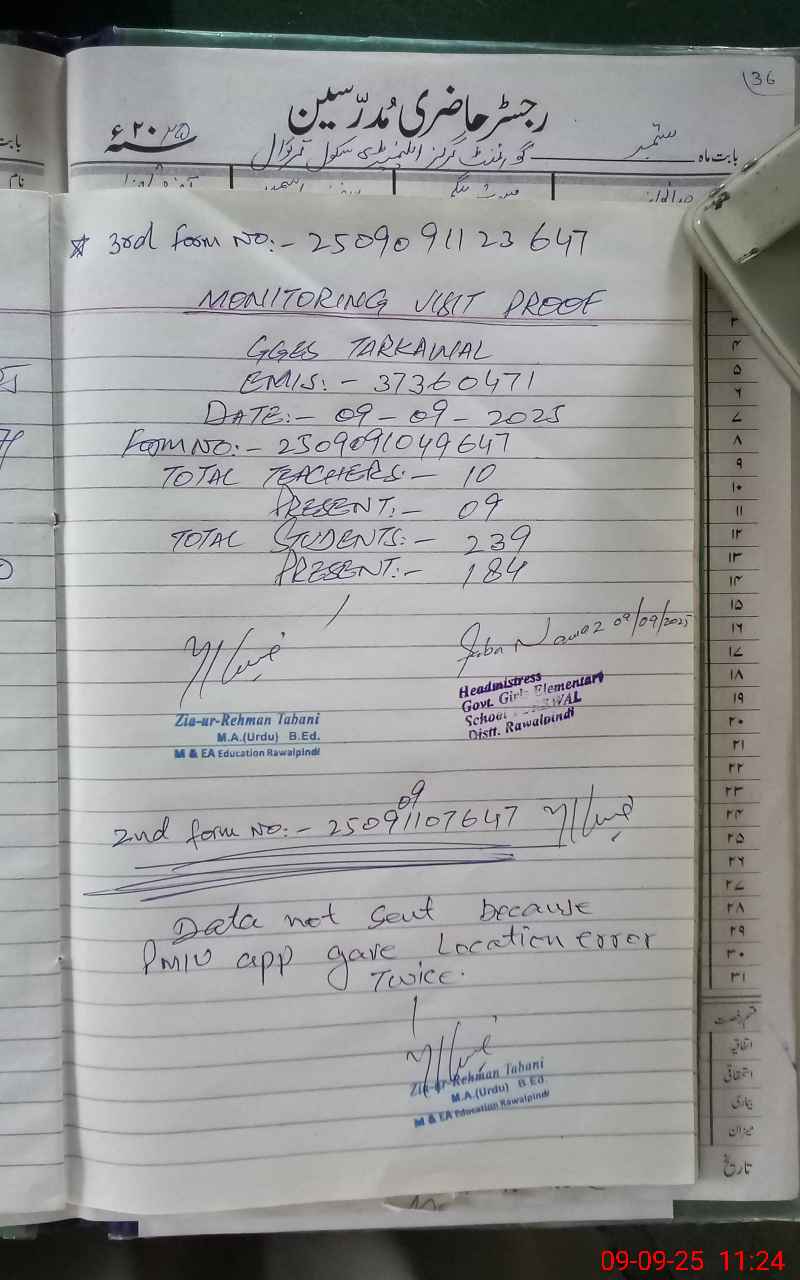 36
رجسٹر حاضری مُدرّسین
بابت ماہ ستمبر گورنمنٹ گرلز ایلیمنٹری سکول ترکوال سنہ ۲۰۲۵ء
بابت
نام
☆ 3rd Form NO:- 2509091123647
MONITORING VISIT PROOF
GGES TARKAWAL
EMIS:- 37360471
DATE:- 09-09-2025
Form NO:- 2509091049647
TOTAL TEACHERS:- 10
PRESENT:- 09
TOTAL STUDENTS:- 239
PRESENT:- 184
09/09/2025
Zia-ur-Rehman Tahani
M.A.(Urdu) B.Ed.
M & EA Education Rawalpindi
Headmistress
Govt. Girls Elementary
School
Distt. Rawalpindi
09
2nd form NO:- 25091107647
Data not sent because
PMIU app gave Location error
Twice.
Zia-ur-Rehman Tahani
M.A.(Urdu) B.Ed.
M & EA Education Rawalpindi
۴
۵
۶
۷
۸
۹
۱۰
۱۱
۱۲
۱۳
۱۴
۱۵
۱۶
۱۷
۱۸
۱۹
۲۰
۲۱
۲۲
۲۳
۲۴
۲۵
۲۶
۲۷
۲۸
۲۹
۳۰
۳۱
قسم رخصت
اتفاقیہ
استحقاقی
بیماری
میزان
تاریخ
09-09-25 11:24